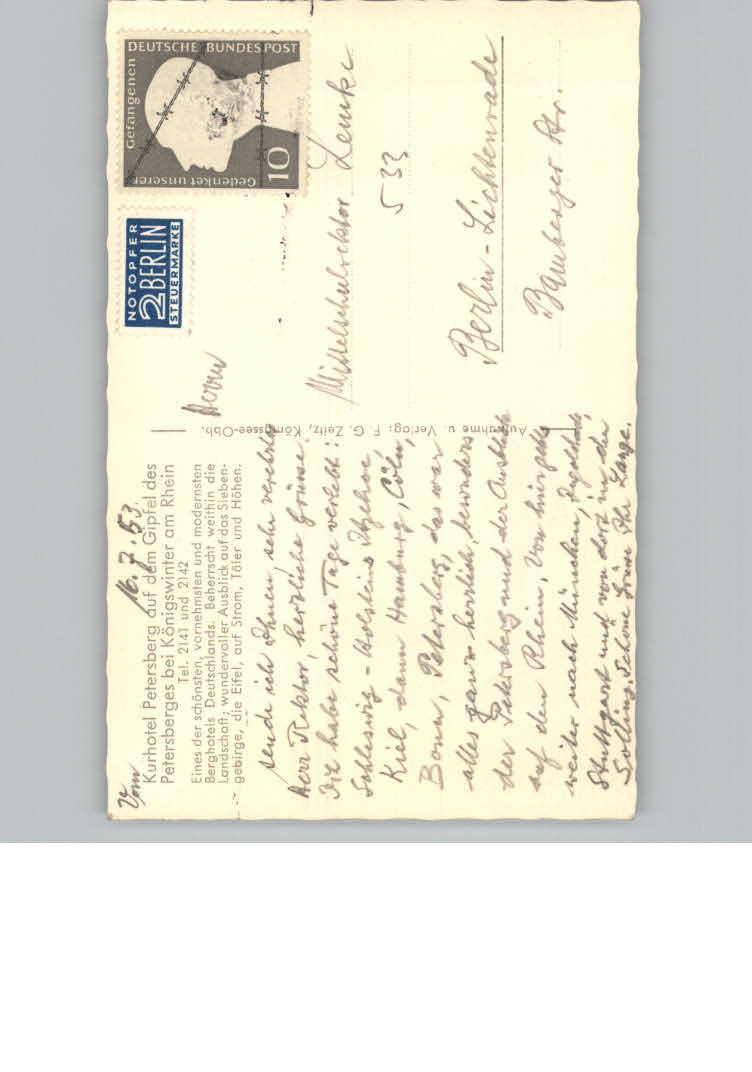 Vom
16.7.53.
Kurhotel Petersberg auf dem Gipfel des
Petersberges bei Königswinter am Rhein
Tel. 2141 und 2142
Eines der schönsten, vornehmsten und modernsten
Berghotels Deutschlands. Beherrscht weithin die
Landschaft; wundervoller Ausblick auf das Sieben-
gebirge, die Eifel, auf Strom, Täler und Höhen.
sende ich Ihnen, sehr verehrter
Herr Rektor, herzliche Grüsse.
Die habe schöne Tage verlebt:
Schleswig-Holsteins Itzehoe,
Kiel, dann Hamburg, Cöln,
Bonn, Petersberg, das war
alles ganz herrlich, besonders
der Petersberg und der Ausblick
auf den Rhein. Von hier geht's
weiter nach München, Ingolstadt,
Stuttgart und von dort in den
Solling. Schöne Ihr Lange.
Aufnahme u. Verlag: F. G. Zeitz, Königssee-Obb.
NOTOPFER
2 BERLIN
STEUERMARKE
DEUTSCHE BUNDESPOST
Gedenket unserer
Gefangenen
10
Herrn
Mittelschulrektor Lemke
533
Berlin-Lichtenrade
Bamberger Str.